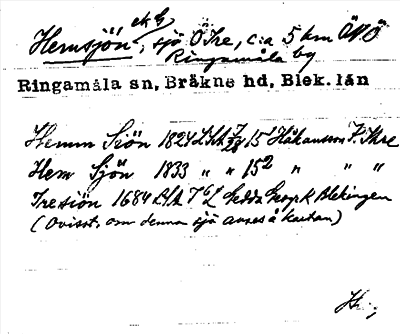 Hemsjön ek bl, sjö Ö Ire, c:a 5 km ÖNÖ
Ringamåla by
Ringamåla sn, Bräkne hd, Blek. län
Hemm Siön 1824 LSA 15¹ Håkansson F. Ihre
Hem Sjön 1833 " " 15² " " "
Iresiön 1684 LSA Gedda Geogr. K Blekingen
(Ovisst, om denna sjö avses å kartan)